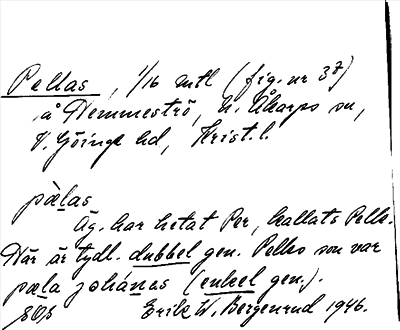 Pellas, 1/16 mtl (fig. nr 37)
å Hemmeströ, N. Åkarps sn,
V. Göinge hd, Krist. l.
pæ̀las
Äg. har hetat Per, kallats Pelle.
Här är tydl. dubbel gen. Pelles son var
pæla johánəs (enkel gen.).
Erik W. Bergenrud 1946.